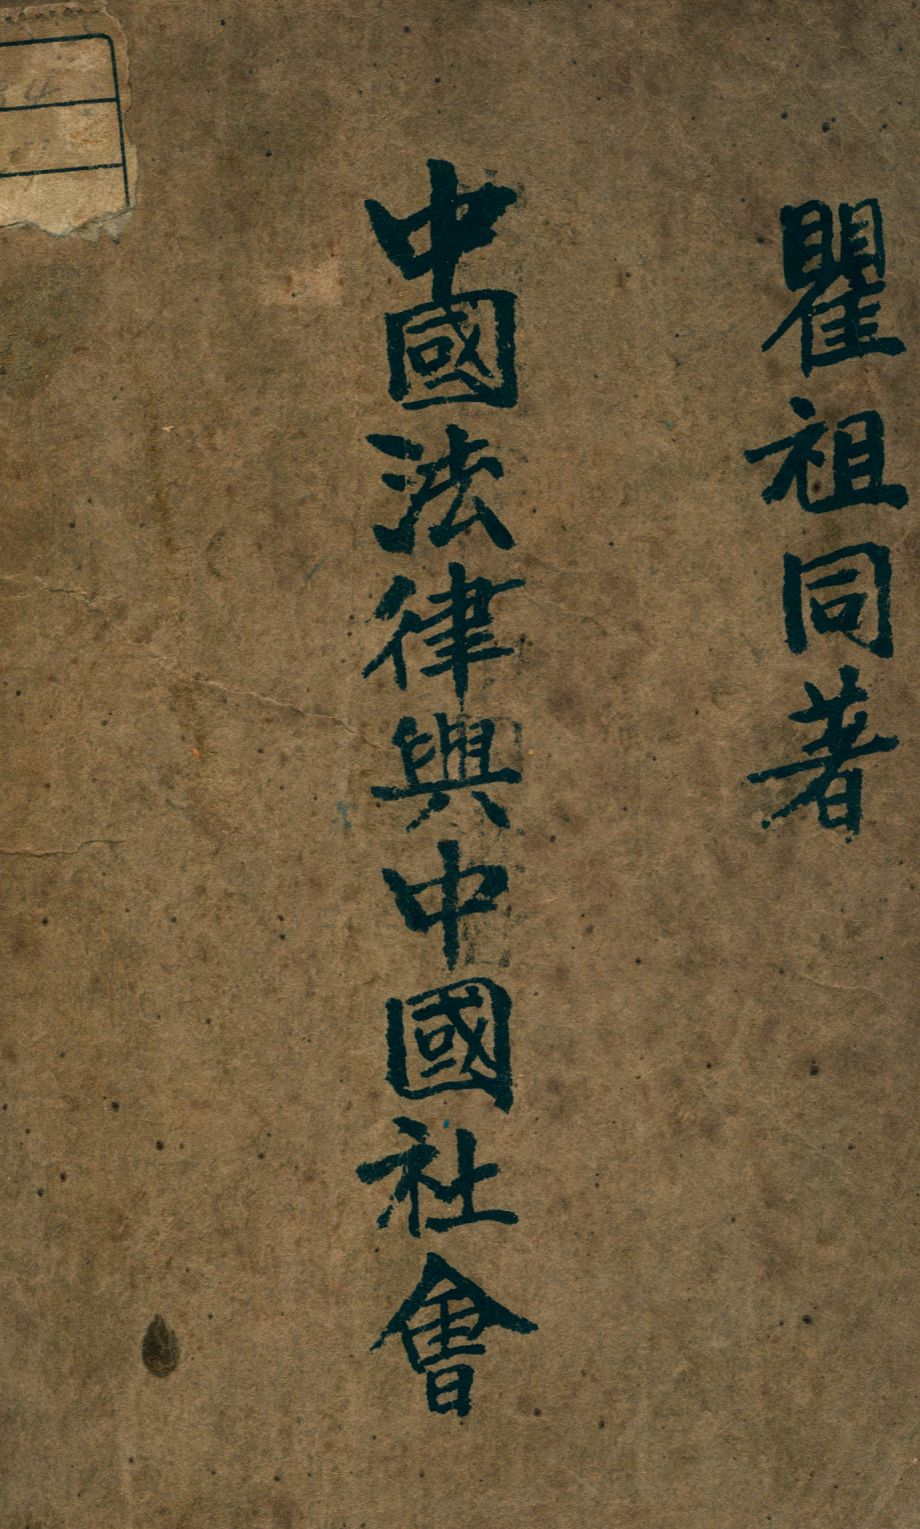 瞿祖同著
中國法律與中國社會